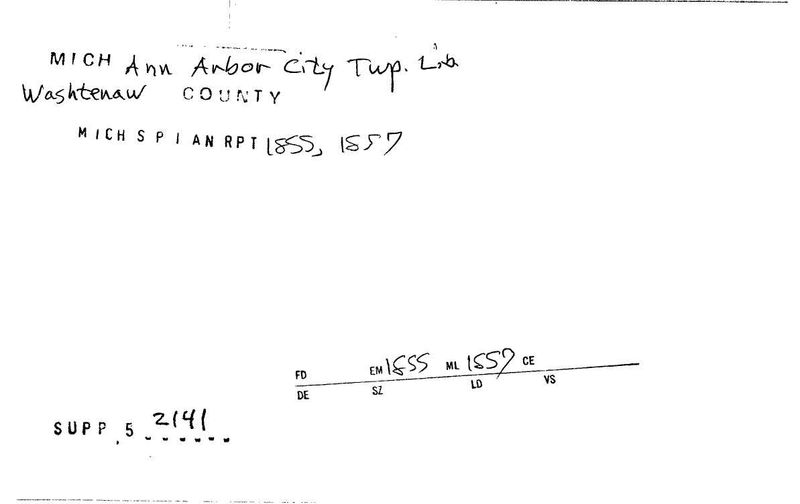 MICH Ann Arbor City Twp. Lib.
Washtenaw COUNTY
MICH S P I AN RPT 1855, 1857
FD EM 1855 ML 1857 CE
DE SZ LD VS
SUPP. 5 2141